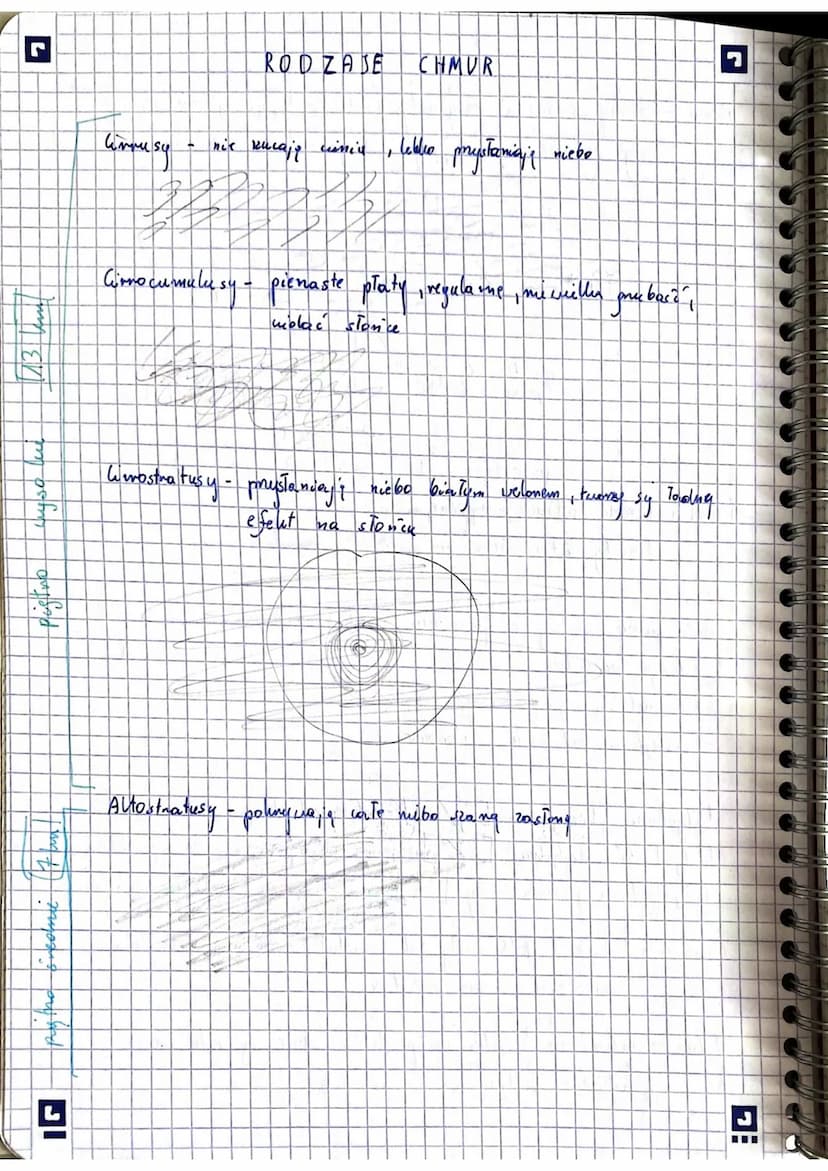 RODZAJE CHMUR
Cirrusy - nie rzucają cieniu, lekko przysłaniają niebo
Cirrocumulusy - pierzaste płaty, regularne, niewielka grubość,
widać słońce
Cirrostratusy - przysłaniają niebo białym welonem, tworzy się ładny
efekt na słońcu
Altostratusy - pokrywają całe niebo szarą zasłoną
piętro wysokie 13 km
piętro średnie 7 km